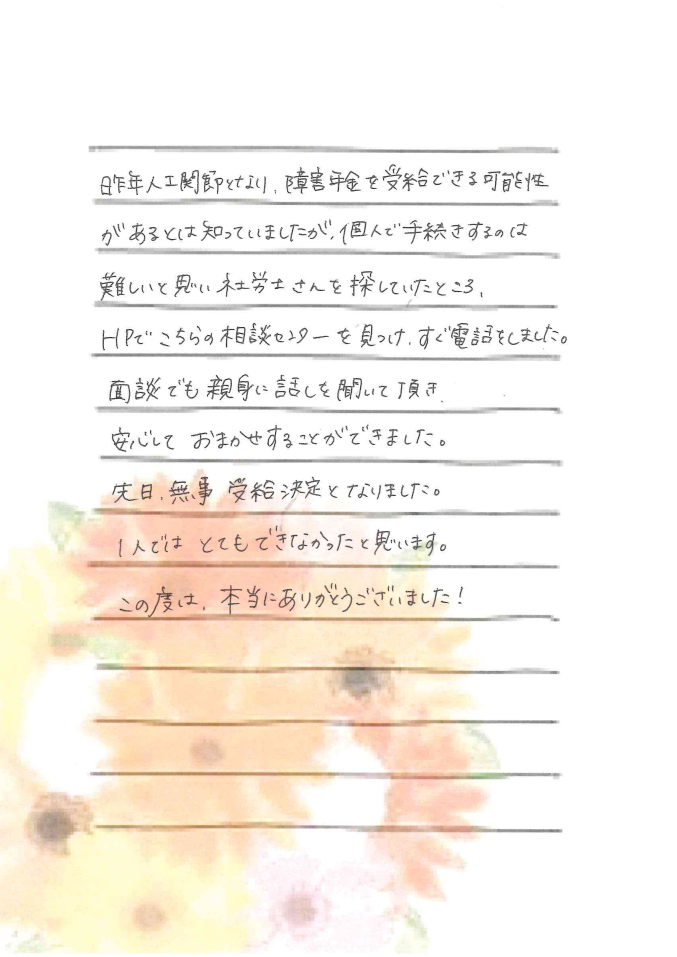 昨年人工関節となり、障害年金を受給できる可能性
があるとは知っていましたが、個人で手続きするのは
難しいと思い社労士さんを探していたところ、
HPでこちらの相談センターを見つけ、すぐ電話をしました。
面談でも親身に話しを聞いて頂き、
安心して おまかせすることができました。
先日、無事 受給決定となりました。
1人では とてもできなかったと思います。
この度は、本当にありがとうございました!